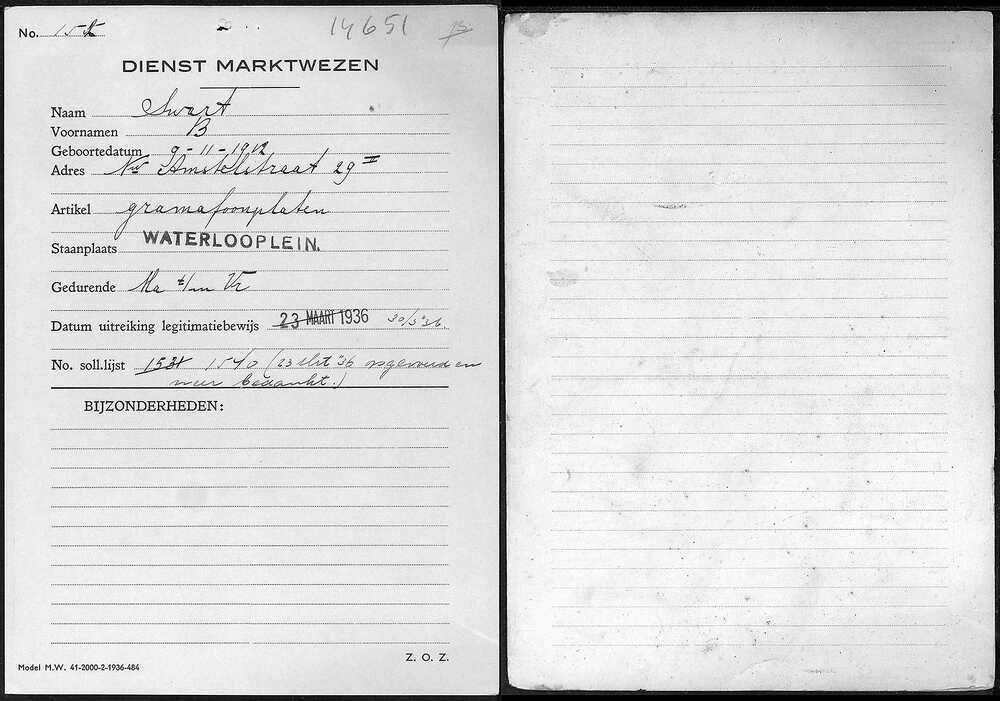 No. 14651
DIENST MARKTWEZEN
Naam Swart
Voornamen B
Geboortedatum 9-11-1912
Adres Nw Amstelstraat 29 II
Artikel gramafoonplaten
Staanplaats WATERLOOPLEIN.
Gedurende Ma t/m Vr
Datum uitreiking legitimatiebewijs 23 MAART 1936 30/3 '36
No. soll.lijst 1531 1540 (23 '36 en
weer bedankt.)
BIJZONDERHEDEN:
Z. O. Z.
Model M.W. 41-2000-2-1936-484